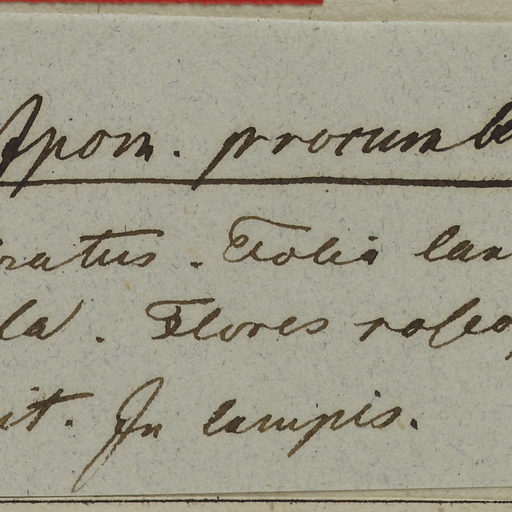 Ipom. procumbe
ratus. Folia lan
la. Flores roseo
it. In campis.